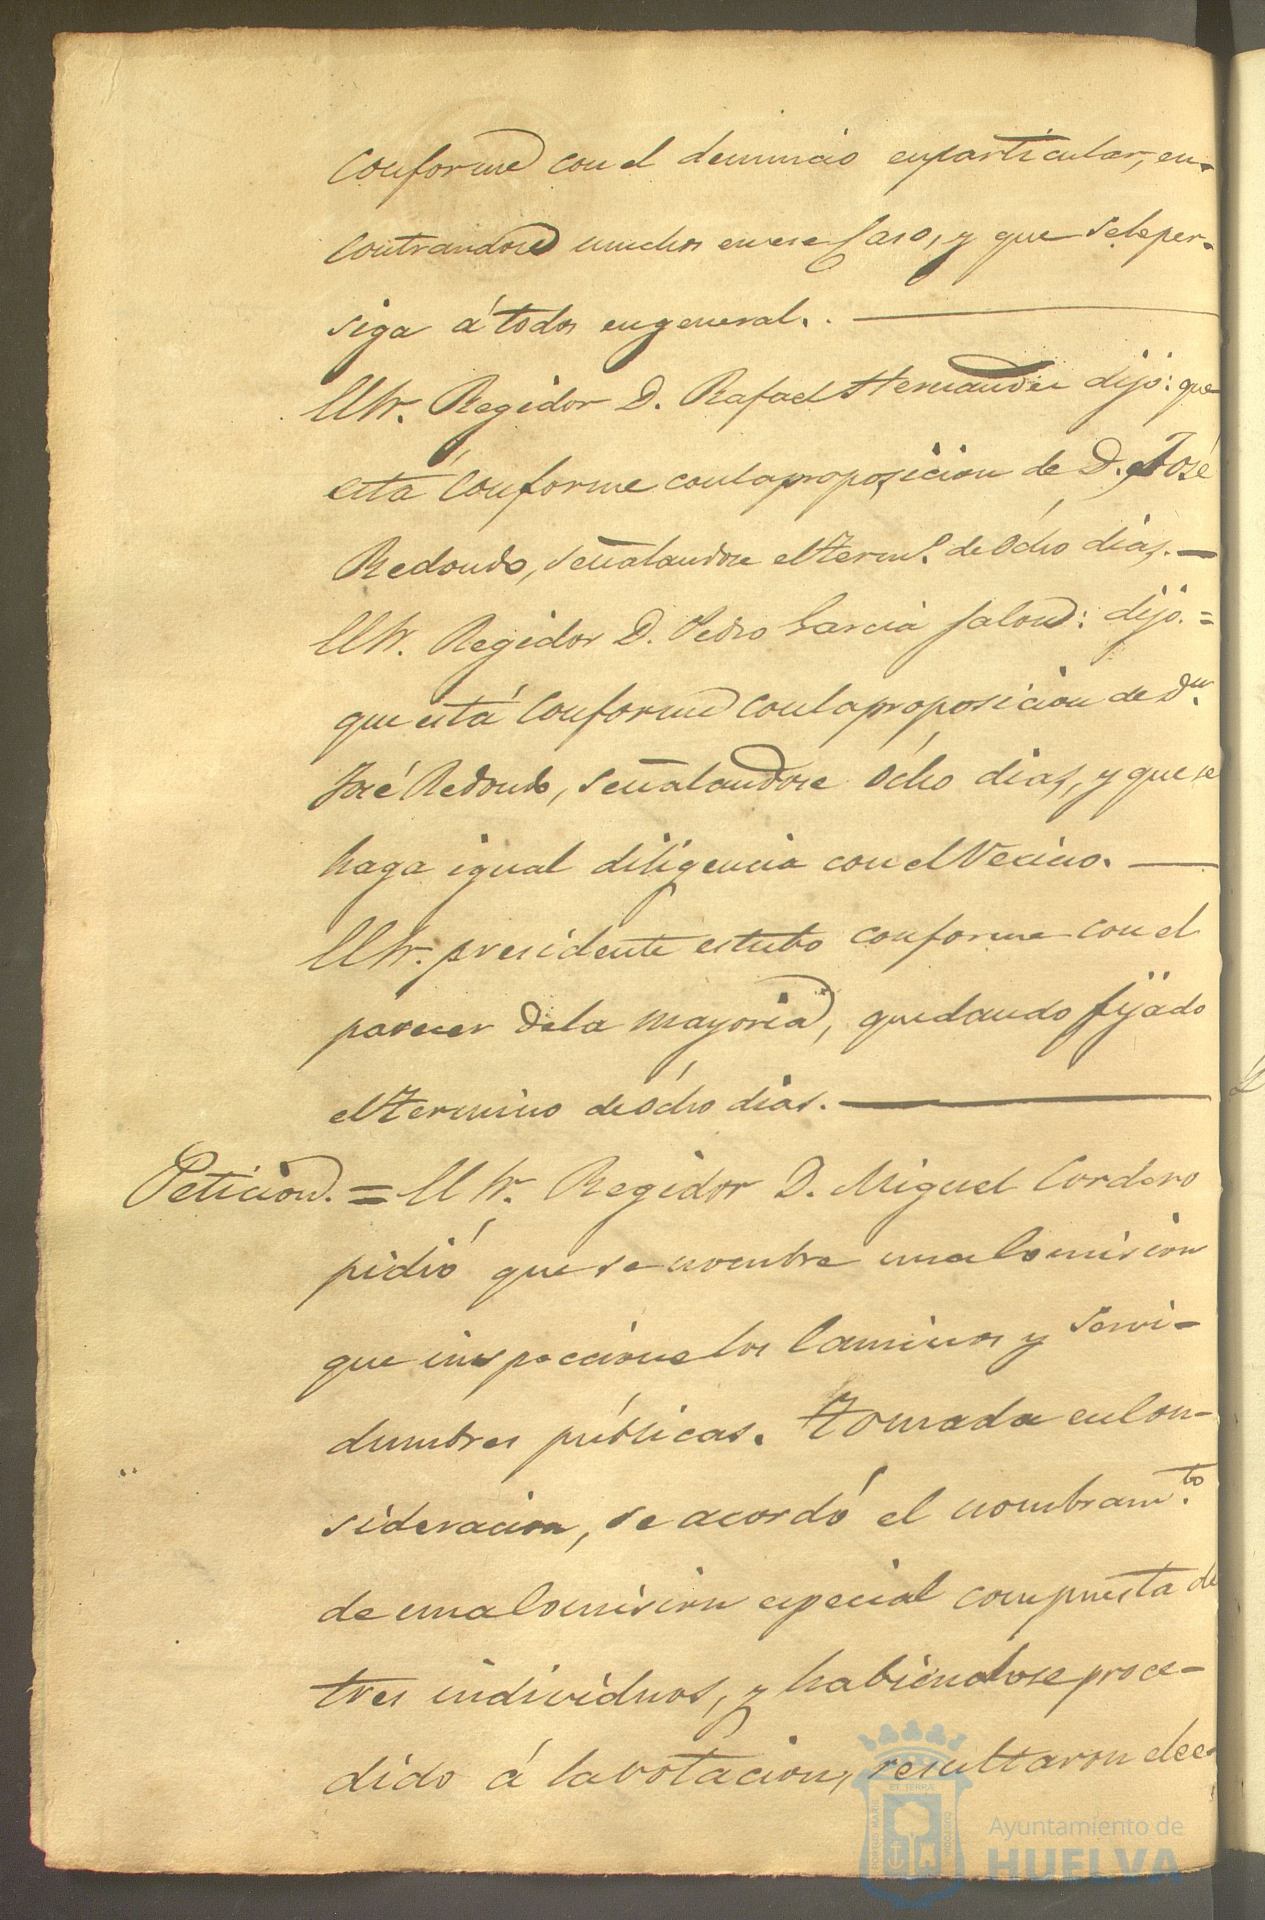 conforme con el denuncio en particular, en-
contrandose muchos en ese Caso, y que se le per-
siga á todos en general. .
El Sr. Regidor D. Rafael Hernandez dijo: que
está Conforme con la proposicion de D. José
Redondo, señalandose el termo. de Ócho dias.
El Sr. Regidor D. Pedro Garcia Jalon: dijo. =
que está Conforme con la proposicion de Dn.
José Redondo, señalandose Ócho dias, y que se
haga igual diligencia con el Vecino.
El Sr. presidente estubo conforme con el
parecer de la mayoria, quedando fijado
el termino de Ócho dias.
Peticion. = El Sr. Regidor D. Miguel Cordero
pidió que se nombre una Comision
que inspeccione los Caminos y servi-
dumbres públicas. Tomada en Con-
sideracion, se acordó el nombramto.
de una Comision especial compuesta de
tres individuos, y habiendose proce-
dido á la votacion, resultaron elec-
Ayuntamiento de
HUELVA